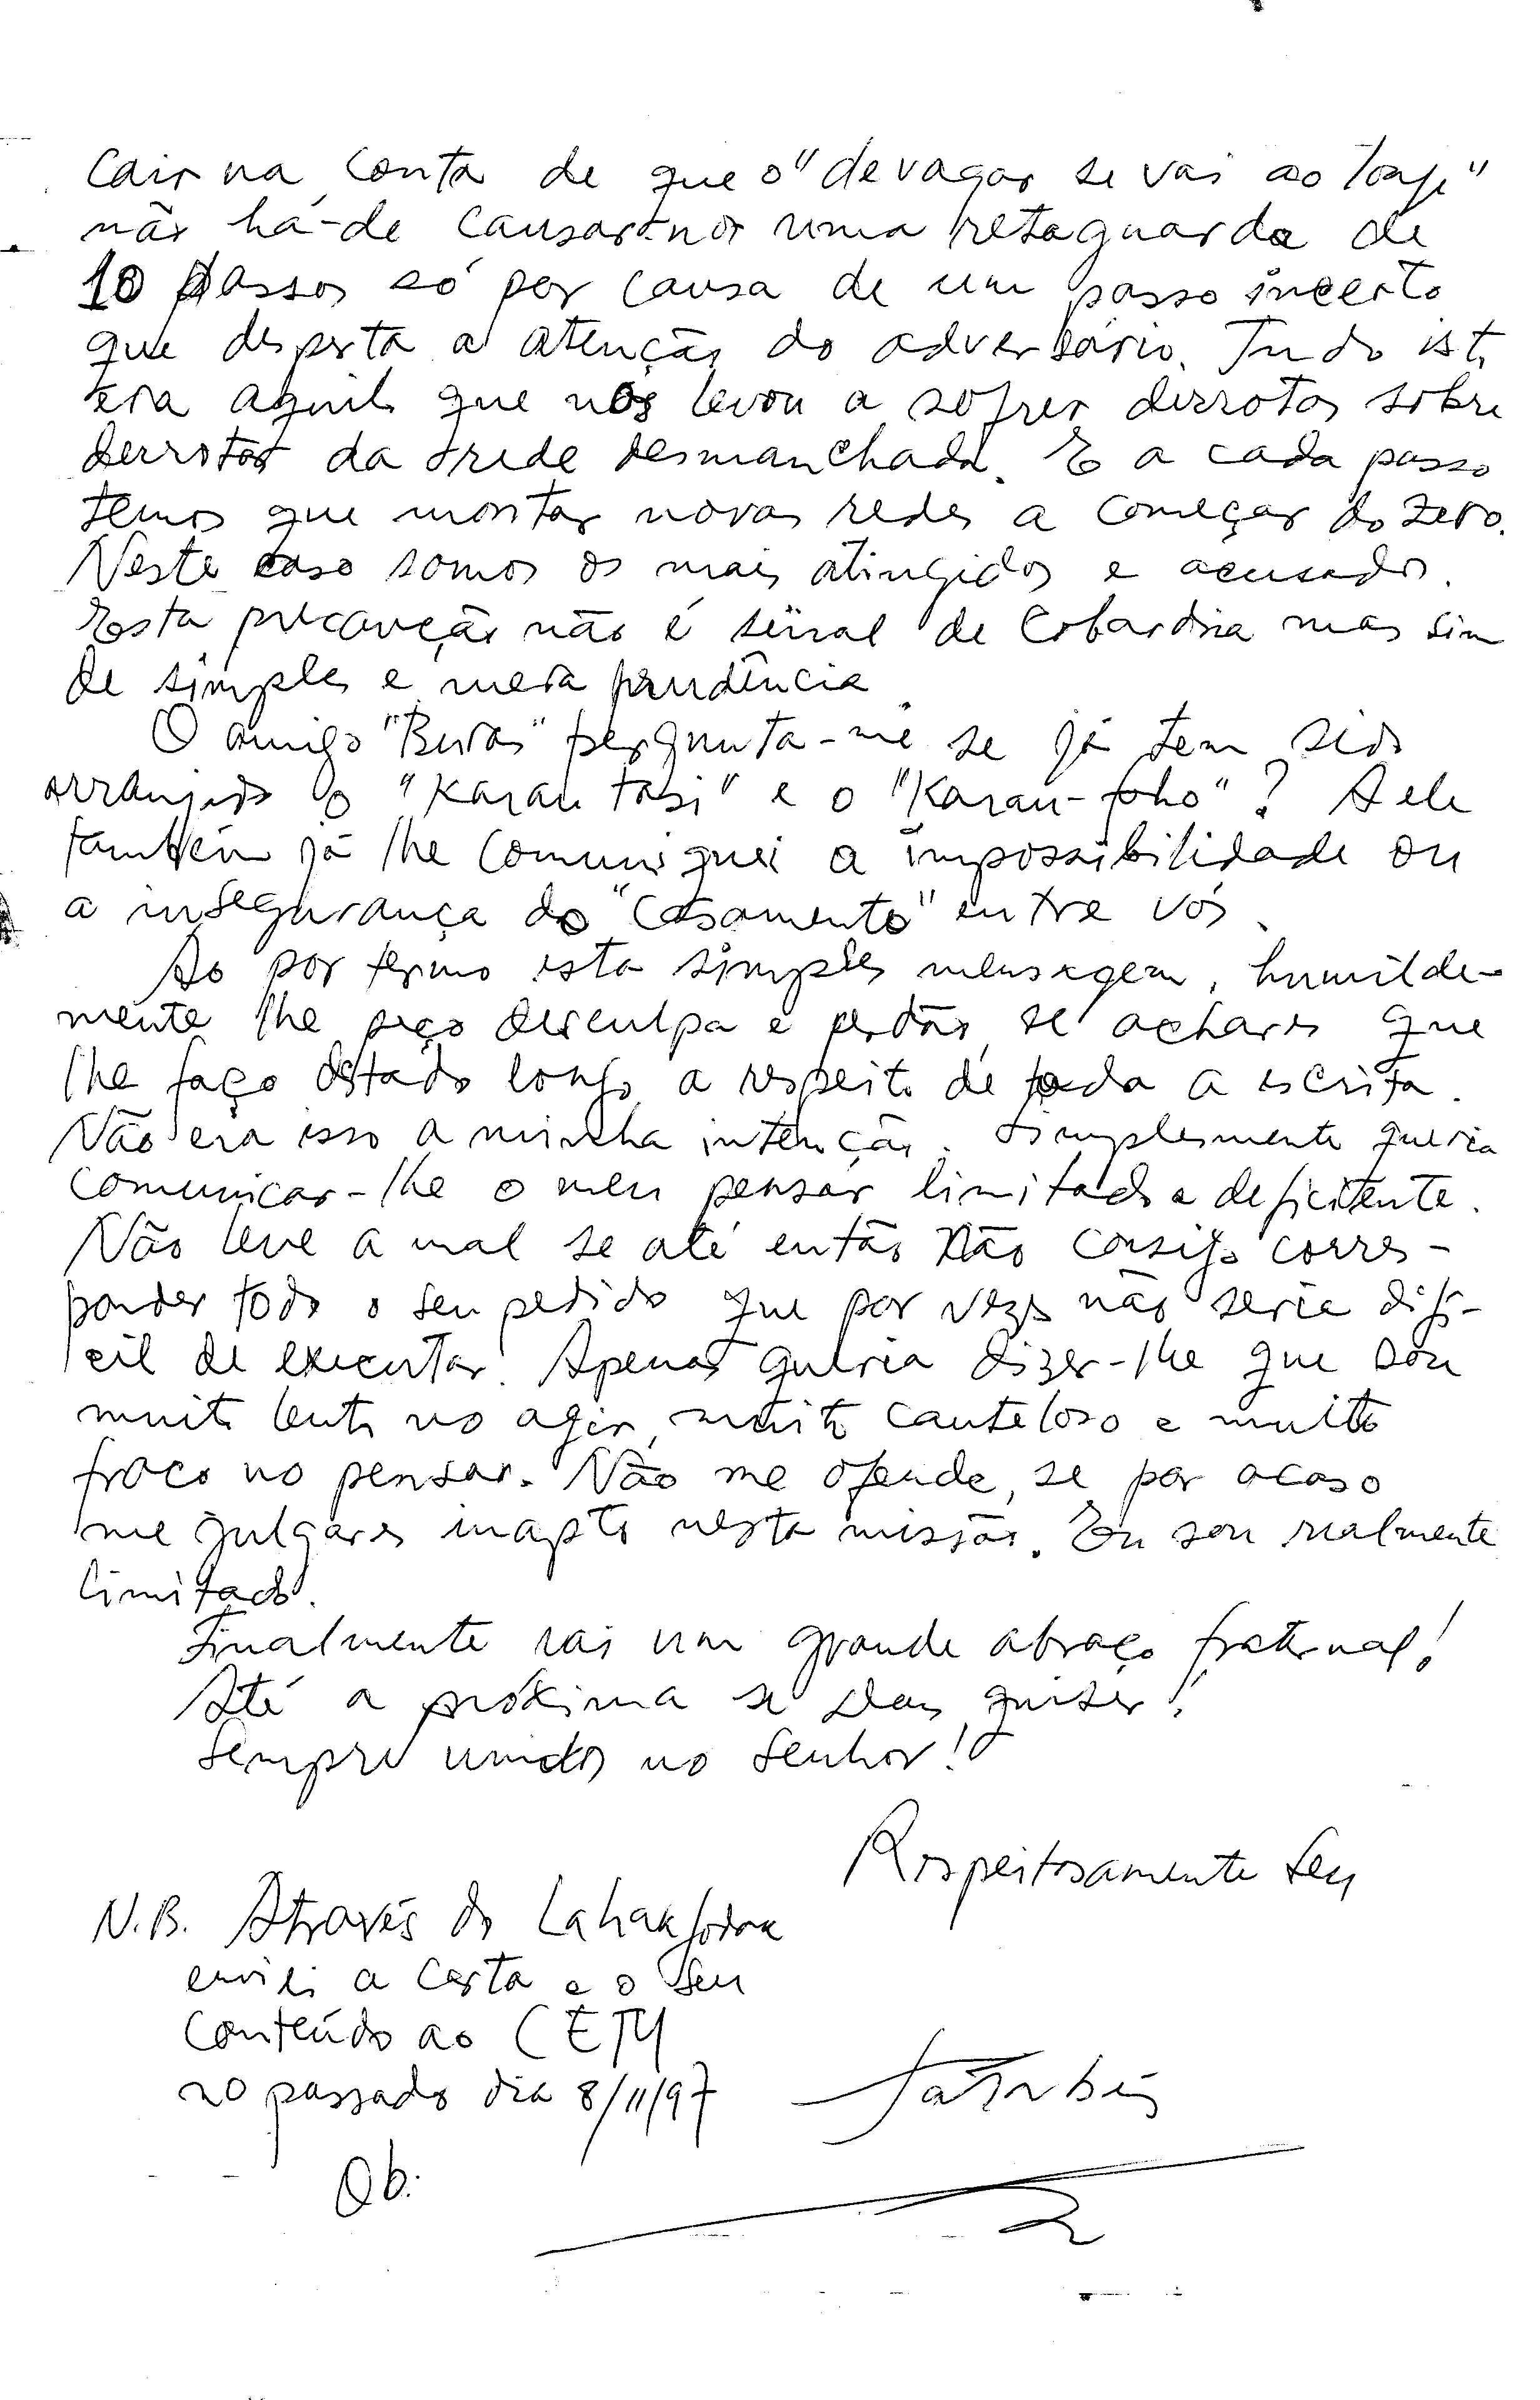 Cair na conta de que o "devagar se vai ao longe"
não há-de causar-nos uma retaguarda de
10 passos só por causa de um passo incerto
que desperta a atenção do adversário. Tudo isto
era aquilo que nos levou a sofrer derrotas sobre
derrotas da rede desmanchada. E a cada passo
temos que montar novas redes a começar do zero.
Neste caso somos os mais atingidos e acusados.
Esta precaução não é sinal de cobardia mas sim
de simples e mera prudência.
O amigo "Buras" pergunta-me se já tem sido
arranjado o "Karau tasi" e o "Karau-foho"? A ele
também já lhe comuniquei a impossibilidade ou
a insegurança do "casamento" entre vós.
Ao por termo esta simples mensagem, humilde-
mente lhe peço desculpa e perdão, se achares que
lhe faço ditado longo a respeito de toda a escrita.
Não era isso a minha intenção. Simplesmente queria
comunicar-lhe o meu pensar limitado e deficitente.
Não leve a mal se até então não consigo corres-
ponder todo o seu pedido que por vezes não seria difí-
cil de executar. Apenas queria dizer-lhe que sou
muito lento no agir, muito cauteloso e muito
fraco no pensar. Não me ofende, se por acaso
me julgares inapto nesta missão. Eu sou realmente
limitado.
Finalmente vai um grande abraço fraternal!
Até a próxima se Deus quiser!
Sempre unidos no Senhor!
Respeitosamente Seu
N.B. Através do Lahakfodak
enviei a carta e o seu
conteúdo ao CETY
no passado dia 8/11/97
Ob.